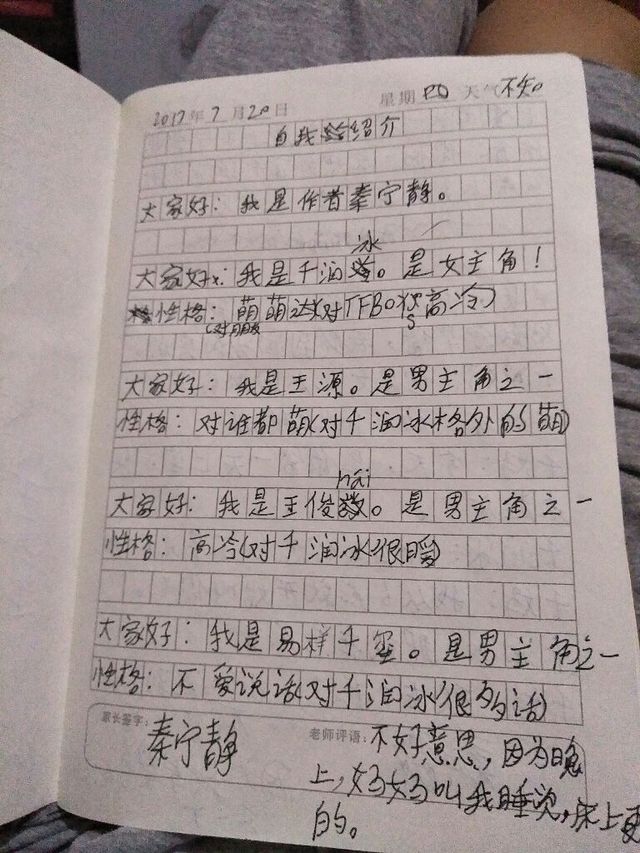 2017年7月20日 星期四 天气不知。
自我介绍
大家好：我是作者秦宁静。
冰
大家好：我是千润。是女主角！
性格：萌萌达(对TFBOYS高冷)
(对朋友
大家好：我是王源。是男主角之一
性格：对谁都萌(对千润冰格外的萌)
hái
大家好：我是王俊。是男主角之一
性格：高冷(对千润冰很暖)
大家好：我是易样千玺。是男主角之一
性格：不爱说话(对千润冰很多话)
家长签字：秦宁静
老师评语：不好意思，因为晚
上，妈妈叫我睡觉，床上
的。